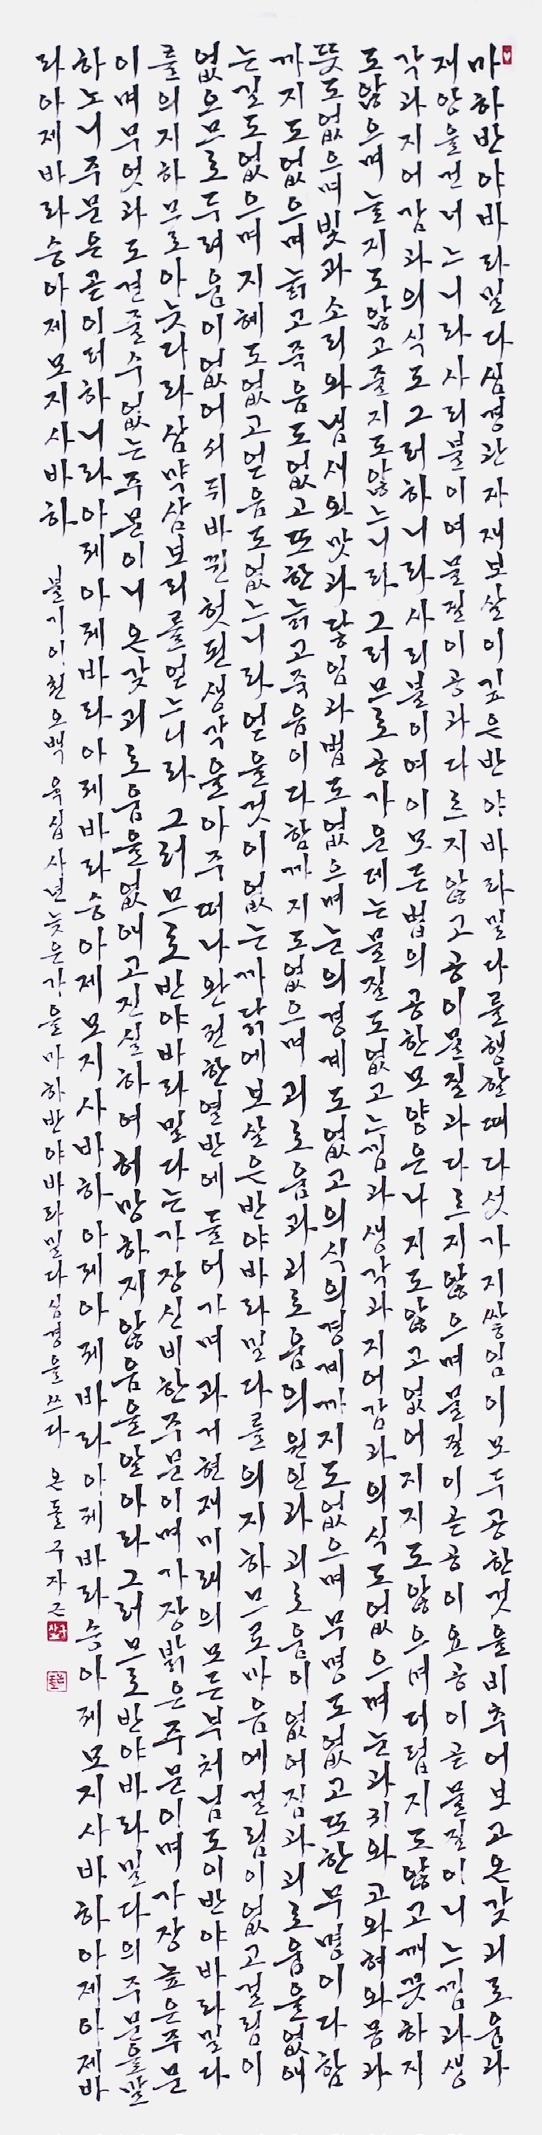 마하반야바라밀다심경관자재보살이깊은반야바라밀다를행할때다섯가지쌓임이모두공한것을비추어보고온갖괴로움과
재앙을건너느니라사리불이여물질이공과다르지않고공이물질과다르지않으며물질이곧공이요공이곧물질이니느낌과생
각과지어감과의식도그러하니라사리불이여이모든법의공한모양은나지도않고없어지지도않으며더럽지도않고깨끗하지
도않으며늘지도않고줄지도않느니라그러므로공가운데는물질도없고느낌과생각과지어감과의식도없으며눈과귀와코와혀와몸과
뜻도없으며빛과소리와냄새와맛과닿임과법도없으며눈의경계도없고의식의경계까지도없으며무명도없고또한무명이다함
까지도없으며늙고죽음도없고또한늙고죽음이다함까지도없으며괴로움과괴로움의원인과괴로움이없어짐과괴로움을없애
는길도없으며지혜도없고얻음도없느니라얻을것이없는까닭에보살은반야바라밀다를의지하므로마음에걸림이없고걸림이
없으므로두려움이없어서뒤바뀐헛된생각을아주떠나완전한열반에들어가며과거현재미래의모든부처님도이반야바라밀다
를의지하므로아눗다라삼먁삼보리를얻느니라그러므로반야바라밀다는가장신비한주문이며가장밝은주문이며가장높은주문
이며무엇과도견줄수없는주문이니온갖괴로움을없애고진실하여허망하지않음을알아라그러므로반야바라밀다의주문을말
하노니주문은곧이러하니라아제아제바라아제바라승아제모지사바하아제아제바라아제바라승아제모지사바하아제아제바
라아제바라승아제모지사바하
불기이천오백육십사년늦은가을마하반야바라밀다심경을쓰다 온돌구자근